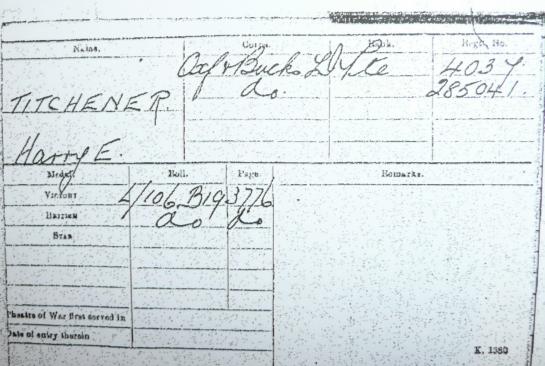 Name. Corps. Rank. Regtl. No.
Oxf & Bucks L I Pte 4037
TITCHENER. do. 285041.
Harry E.
Medal. Roll. Page. Remarks.
Victory L/106 B19 3776
British do do
Star
Theatre of War first served in
Date of entry therein
K. 1380